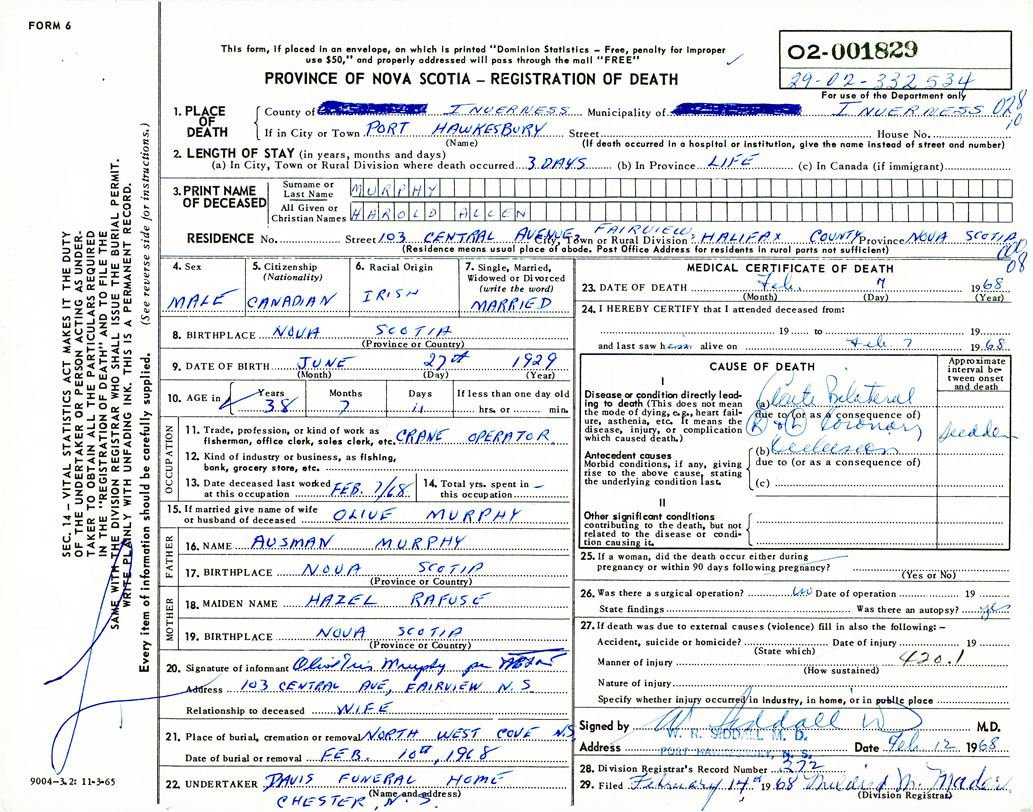 FORM 6
This form, if placed in an envelope, on which is printed "Dominion Statistics – Free, penalty for improper
use $50," and properly addressed will pass through the mail "FREE"
PROVINCE OF NOVA SCOTIA – REGISTRATION OF DEATH
O2-001829
29-02-332534
For use of the Department only
1. PLACE OF DEATH
County of INVERNESS Municipality of INVERNESS 028
10
If in City or Town PORT HAWKESBURY Street House No.
(Name) (If death occurred in a hospital or institution, give the name instead of street and number)
2. LENGTH OF STAY (in years, months and days)
(a) In City, Town or Rural Division where death occurred 3 DAYS (b) In Province LIFE (c) In Canada (if immigrant)
3. PRINT NAME OF DECEASED
Surname or Last Name MURPHY
All Given or Christian Names HAROLD ALLEN
RESIDENCE No. Street 103 CENTRAL AVENUE, FAIRVIEW, City, Town or Rural Division HALIFAX COUNTY Province NOVA SCOTIA
(Residence means usual place of abode. Post Office Address for residents in rural parts not sufficient)
08
4. Sex MALE
5. Citizenship (Nationality) CANADIAN
6. Racial Origin IRISH
7. Single, Married, Widowed or Divorced (write the word) MARRIED
8. BIRTHPLACE NOVA SCOTIA
(Province or Country)
9. DATE OF BIRTH JUNE 27th 1929
(Month) (Day) (Year)
10. AGE in Years 38 Months 7 Days 11 If less than one day old hrs. or min.
OCCUPATION
11. Trade, profession, or kind of work as
fisherman, office clerk, sales clerk, etc. CRANE OPERATOR
12. Kind of industry or business, as fishing,
bank, grocery store, etc.
13. Date deceased last worked
at this occupation FEB. 7/68
14. Total yrs. spent in
this occupation –
15. If married give name of wife
or husband of deceased OLIVE MURPHY
FATHER
16. NAME AUSMAN MURPHY
17. BIRTHPLACE NOVA SCOTIA
(Province or Country)
MOTHER
18. MAIDEN NAME HAZEL RAFUSE
19. BIRTHPLACE NOVA SCOTIA
(Province or Country)
20. Signature of informant Murphy per
Address 103 CENTRAL AVE, FAIRVIEW N.S
Relationship to deceased WIFE
21. Place of burial, cremation or removal NORTH WEST COVE NS
Date of burial or removal FEB. 10th, 1968
22. UNDERTAKER DAVIS FUNERAL HOME
(Name and address)
CHESTER, N.S.
MEDICAL CERTIFICATE OF DEATH
23. DATE OF DEATH Feb. 7 1968
(Month) (Day) (Year)
24. I HEREBY CERTIFY that I attended deceased from:
19 to 19
and last saw him alive on Feb 7 1968
CAUSE OF DEATH
Approximate interval between onset and death
I
Disease or condition directly leading to death (This does not mean the mode of dying, e.g., heart failure, asthenia, etc. It means the disease, injury, or complication which caused death.)
(a) Acute Bilateral
due to (or as a consequence of)
(R & L) Coronary Sudden
Antecedent causes
Morbid conditions, if any, giving rise to the above cause, stating the underlying condition last.
(b) Occlusion
due to (or as a consequence of)
(c)
II
Other significant conditions
contributing to the death, but not related to the disease or condition causing it.
25. If a woman, did the death occur either during
pregnancy or within 90 days following pregnancy?
(Yes or No)
26. Was there a surgical operation? no Date of operation 19
State findings Was there an autopsy? yes
27. If death was due to external causes (violence) fill in also the following: –
Accident, suicide or homicide? Date of injury 19
(State which)
Manner of injury 420.1
(How sustained)
Nature of injury
Specify whether injury occurred in Industry, in home, or in public place
Signed by W Siddall M.D.
W. R. SIDDALL M. D.
Address PORT HAWKESBURY, N. S. Date Feb. 12 1968
28. Division Registrar's Record Number 372
29. Filed February 14th 1968 Mildred M. Mader
(Division Registrar)
SEC. 14 – VITAL STATISTICS ACT MAKES IT THE DUTY
OF THE UNDERTAKER OR PERSON ACTING AS UNDER-
TAKER TO OBTAIN ALL THE PARTICULARS REQUIRED
IN THE "REGISTRATION OF DEATH" AND TO FILE THE
SAME WITH THE DIVISION REGISTRAR WHO SHALL ISSUE THE BURIAL PERMIT.
WRITE PLAINLY WITH UNFADING INK. THIS IS A PERMANENT RECORD.
Every item of information should be carefully supplied. (See reverse side for instructions.)
9004-3.2: 11-3-65